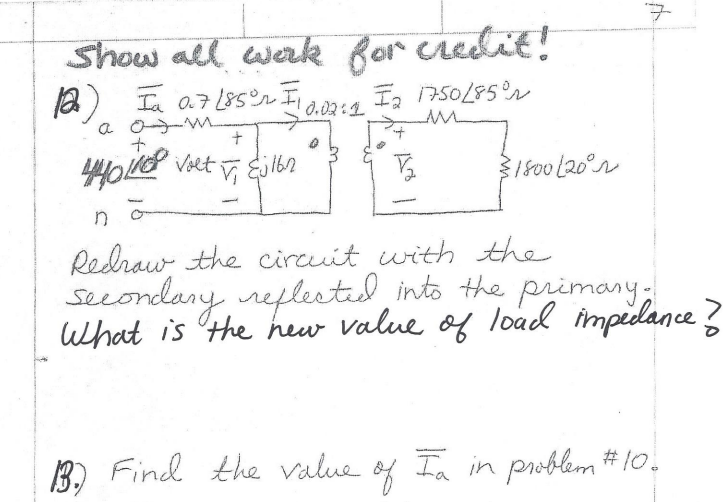 7
Show all work for credit!
12.) Īa 0.7∠85°Ω Ī1 0.02:1 Ī2 1750∠85°Ω
a + + +
440∠10° Volt V̄1 j16Ω V̄2 1800∠20°Ω
n - - -
Redraw the circuit with the
secondary reflected into the primary.
What is the new value of load impedance?
13.) Find the value of Īa in problem #10.